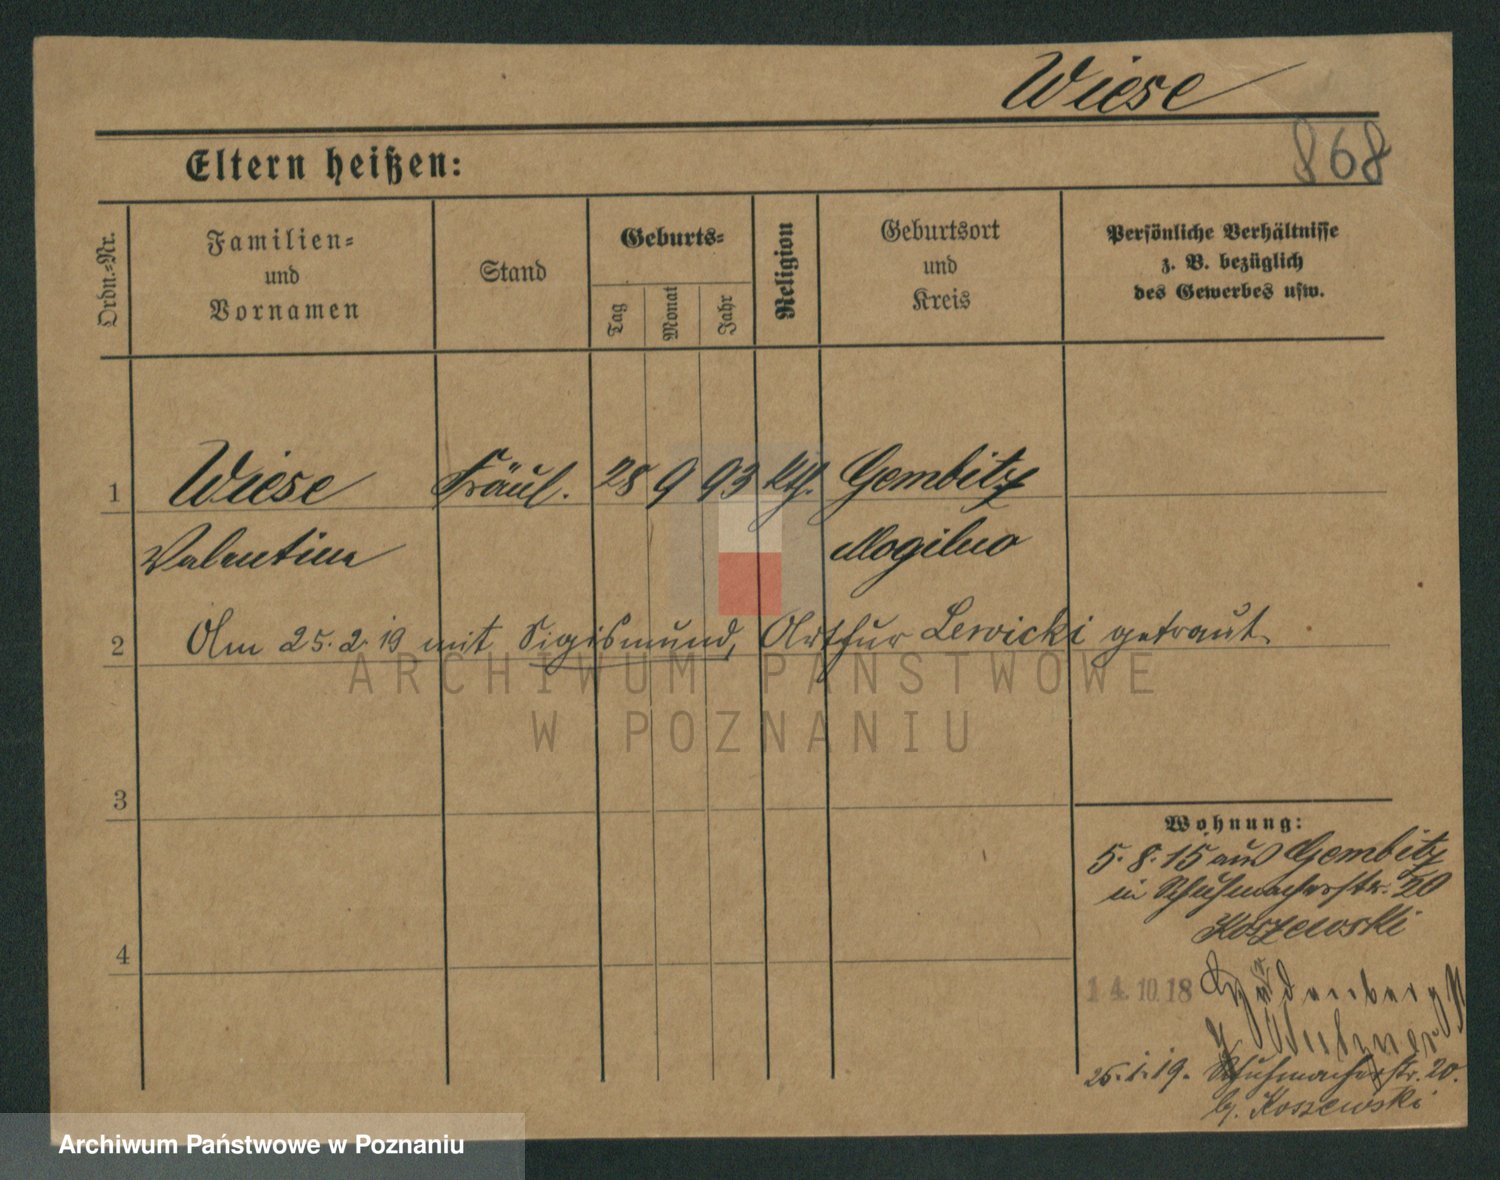 Wiese
868
Eltern heißen:
Ordn.-Nr.
Familien-
und
Vornamen
Stand
Geburts-
Tag
Monat
Jahr
Religion
Geburtsort
und
Kreis
Persönliche Verhältnisse
z. B. bezüglich
des Gewerbes usw.
1 Wiese Fräul. 28 9 93 kth. Gembitz
Valentina Mogilno
2 Am 25.2.19 mit Sigismund, Arthur Lewicki getraut.
ARCHIWUM PAŃSTWOWE
W POZNANIU
3
Wohnung:
5.8.15 aus Gembitz
in Schuhmacherstr. 20
Koszewski
4
14.10.18
25.1.19. Schuhmacherstr. 20.
b/. Koszewski
Archiwum Państwowe w Poznaniu